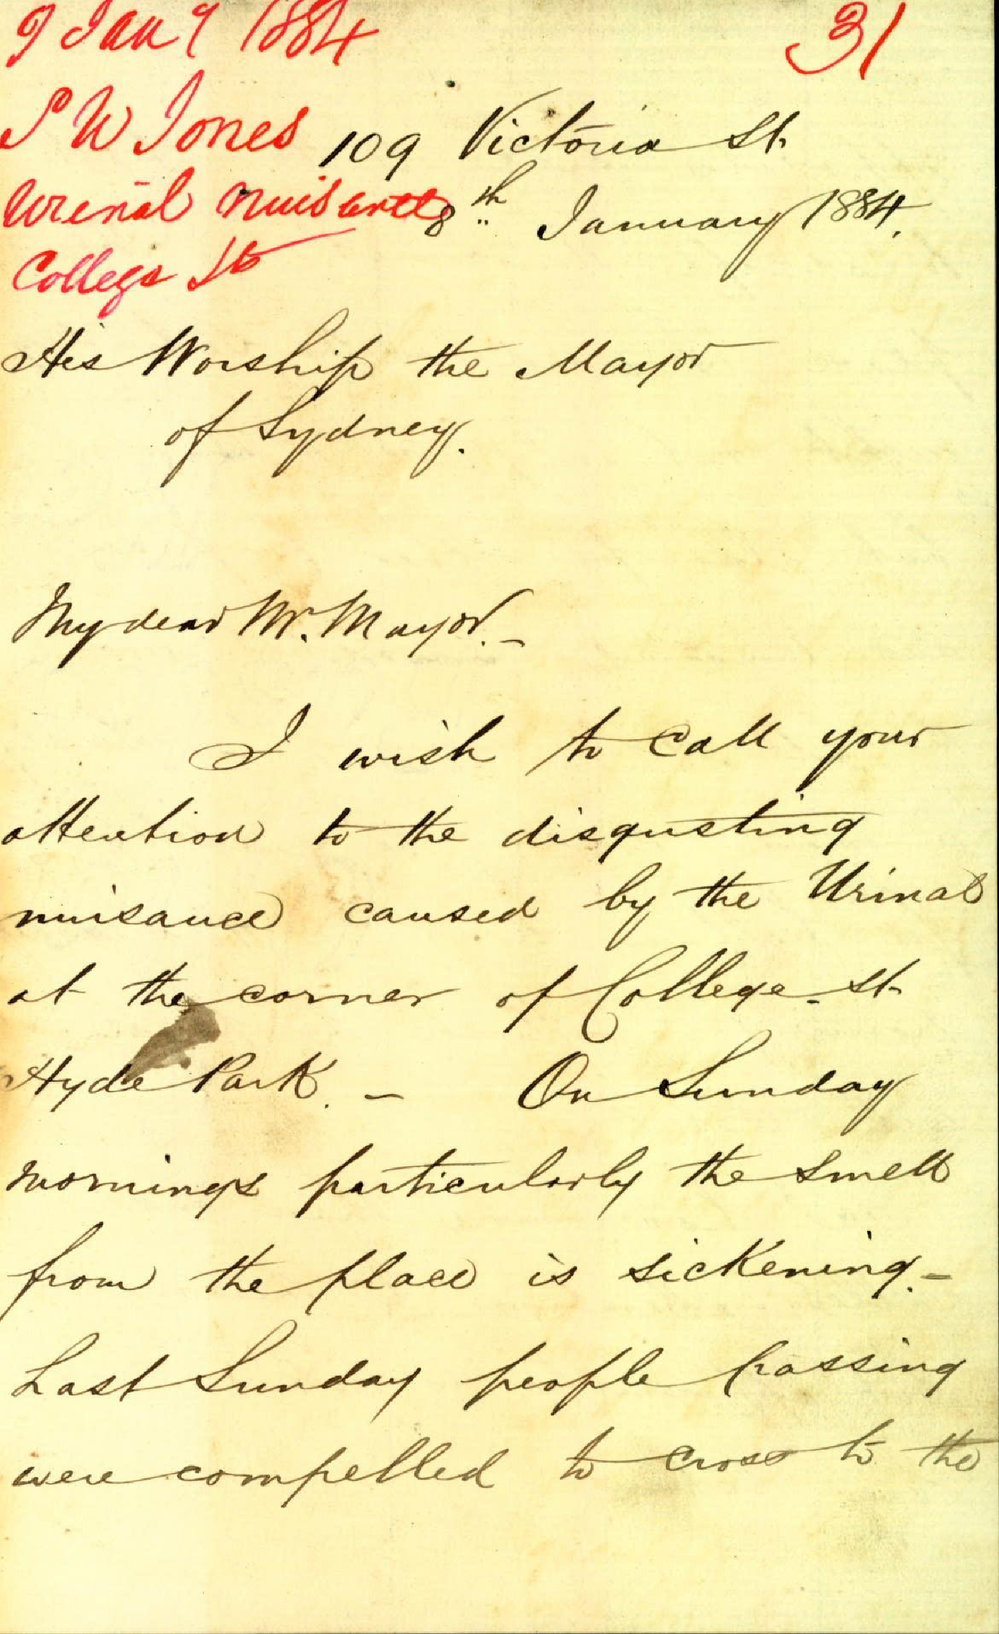 9 Jany 1884
31
S W Jones
109 Victoria St.
Urinal Nuisance
8th January 1884.
College St
His Worship the Mayor
of Sydney.
My dear Mr. Mayor. -
I wish to call your
attention to the disgusting
nuisance caused by the Urinal
at the corner of College - St.
Hyde Park. - On Sunday
mornings particularly the smell
from the place is sickening. -
Last Sunday people passing
were compelled to cross to the